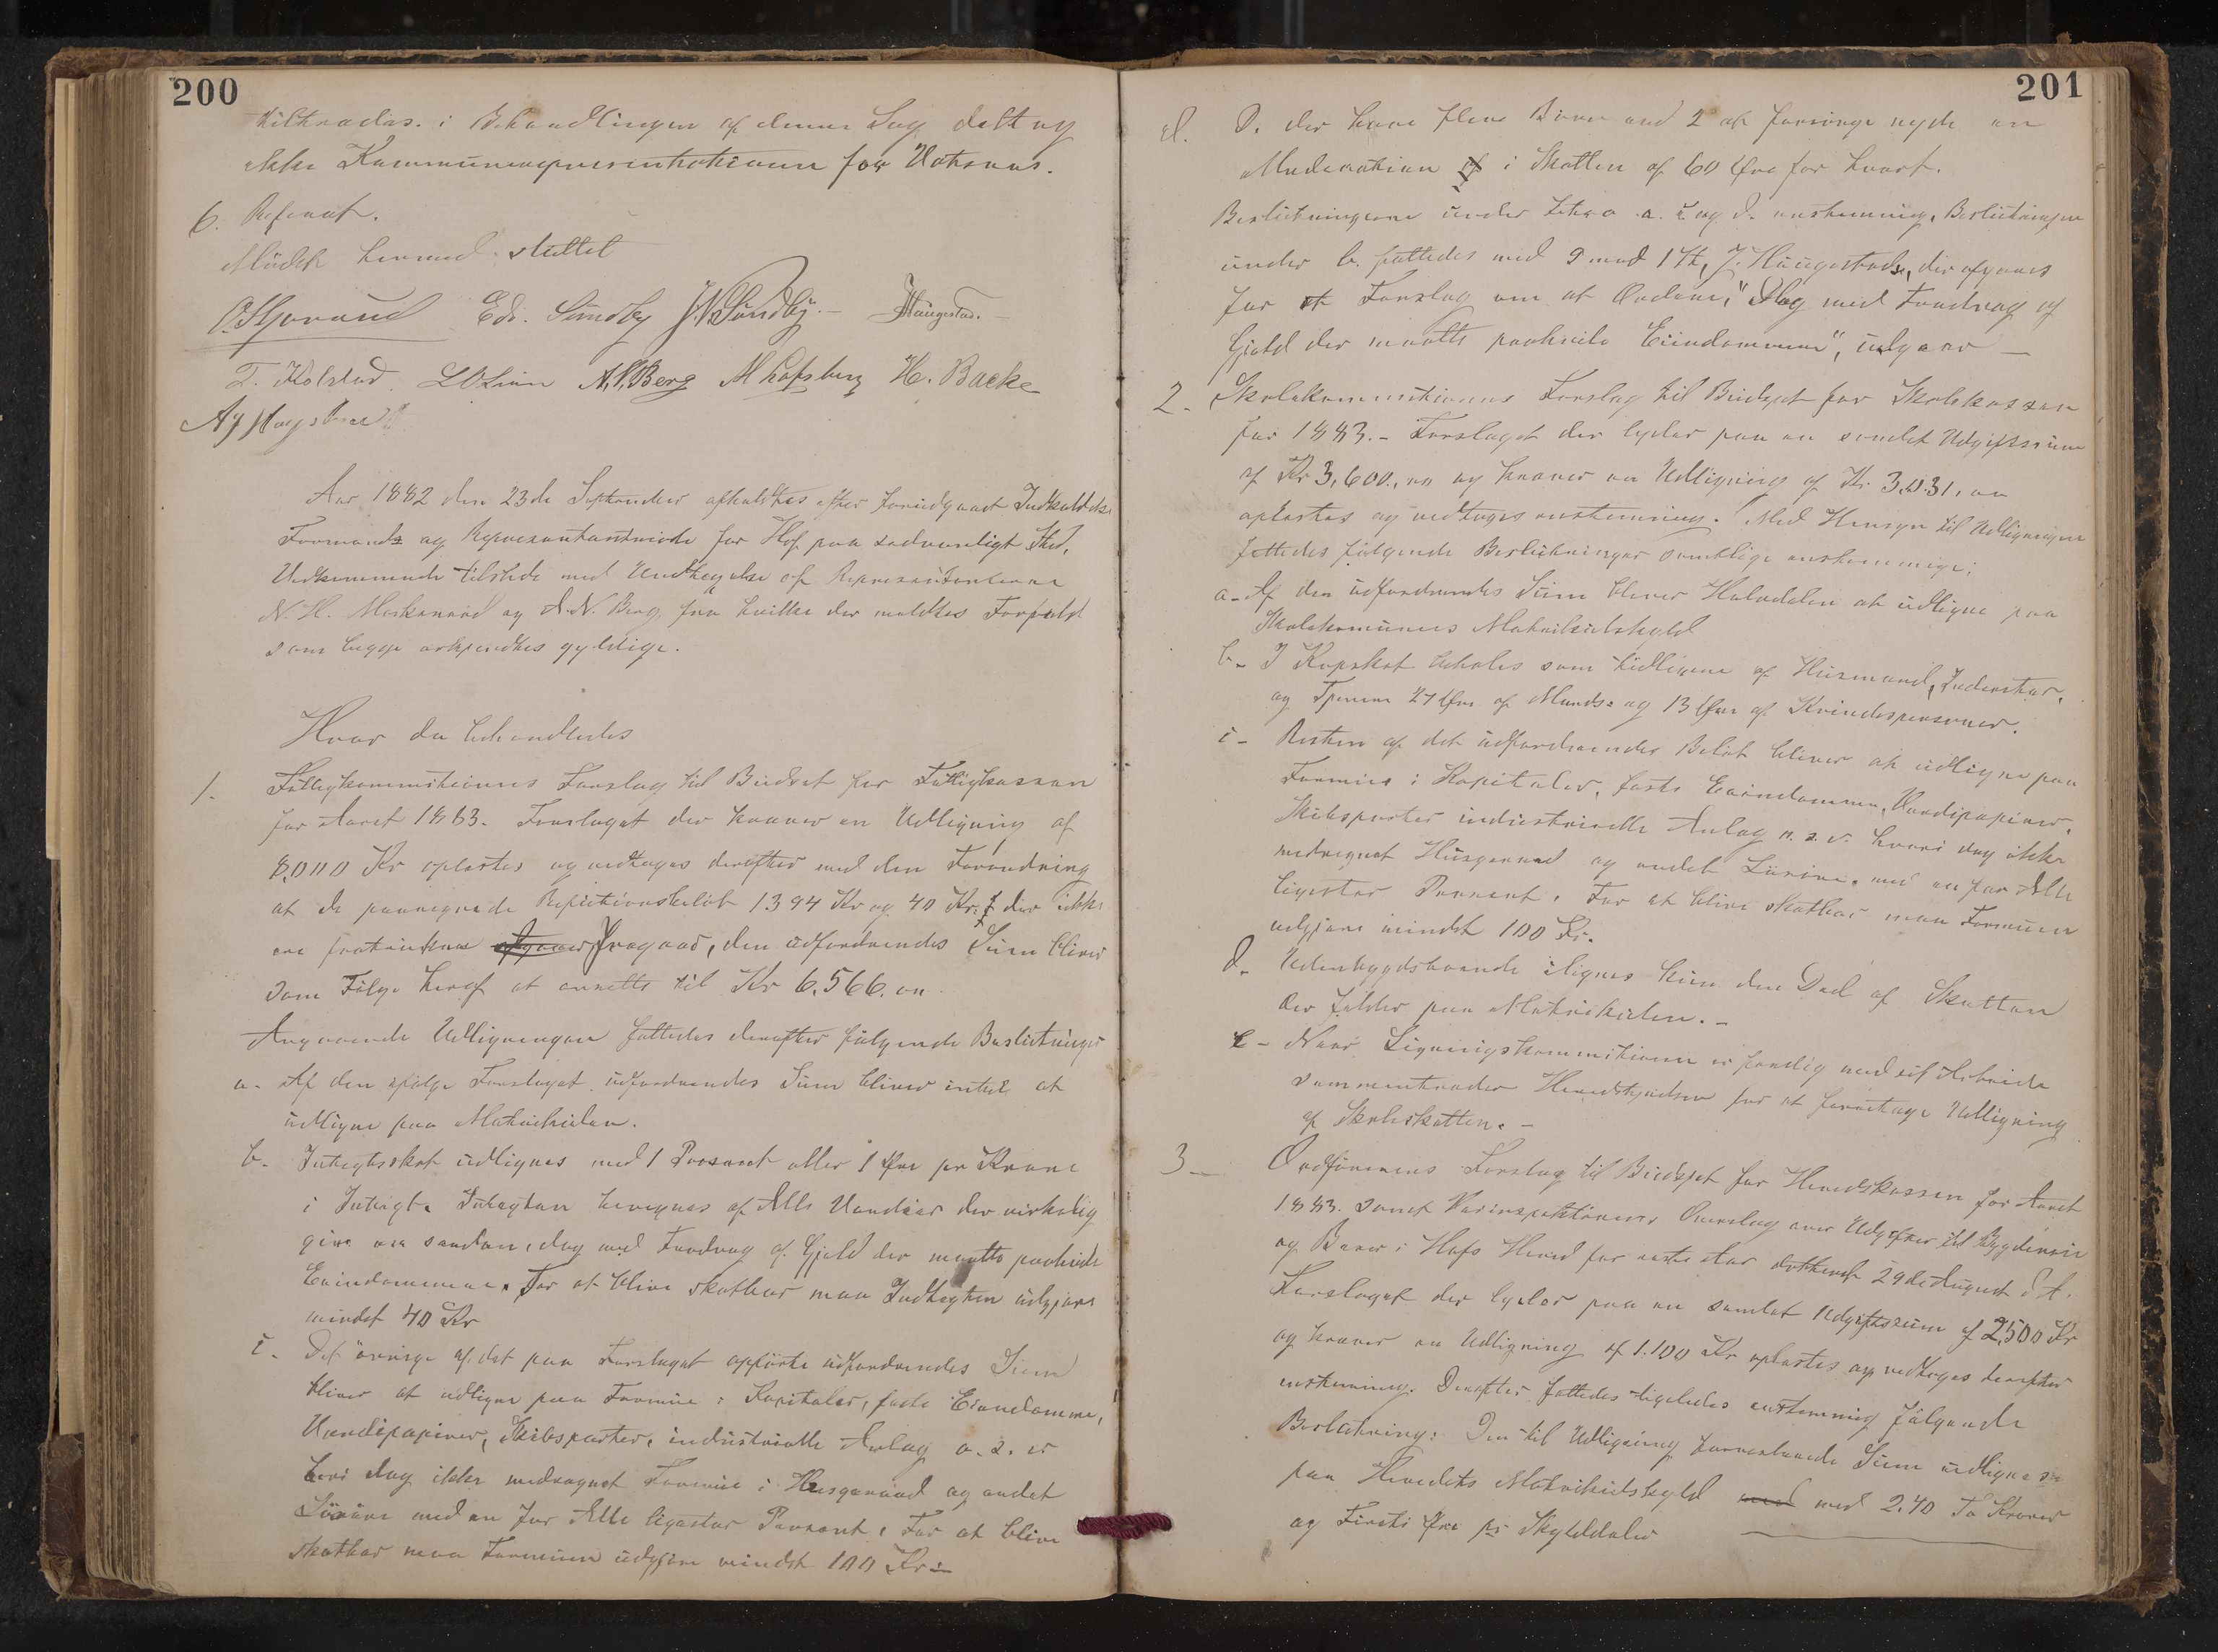 200
tiltrædes i Behandlingen af denne Sag deltog
ikke Kommunerepresentationen for
6. Referat.
Mödet hermed sluttet
Edv. Sundby J. N. Sundby. Haugestad.
T. Kolstad L O Linn A. N. Berg M Lofsberg H. Backe
Aar 1882 den 23de September afholdtes efter foregaaet Indkaldelse
Formands og Representantmöde for Hof paa sædvanligt Sted,
Vedkommende tilstede med Undtagelse af Representanterne
N. H. og A. N. Berg, fra hvilke der meldtes Forfald
som begge erkjendtes gyldige.
Hvor da behandledes
1. Fattigkommisionens Forslag til Budget for Fattigkassen
for Aaret 1883. Forslaget der kræver en Udligning af
8,000 Kr oplæstes og vedtoges derefter med den Forandring
at de paaregnede 1394 Kr og 40 Kr. der ikke
ere fratrukne fragaar, den udfordrendes Sum bliver
som Fölge heraf at ansætte til Kr 6,566.00
Angaaende Udligningen fattedes derefter fölgende Beslutninger
a. Af den ifölge Forslaget udfordrendes Sum bliver intet at
udligne paa Matrikulen.
b. Indtægtsskat udlignes med 1 Procent eller 1 Øre pr Krone
i Indtægt. Indtægten beregnes af Alle Værdier der virkelig
give en saadan, dog med Fradrag af Gjæld der maatte paahvile
Eiendommene. For at blive skatbar maa Indtægten udgjøre
mindst 40 Kr
c. Det övrige af det paa Forslaget opförte udfordrendes Sum
bliver at udligne paa Formue i Kapitaler, faste Eiendomme,
Værdipapirer, Skibsparter, industrielle Anlæg o. s. v
hvori dog ikke medregnet Formue i Husgeraad og andet
Lösöre med en for Alle ligestor Procent. For at blive
skatbar maa Formuen udgjöre mindst 100 Kr.
201
d. D. der have flere Börn end 2 at forsörge nyde en
Moderation i Skatten af 60 Øre for hvert.
Beslutningerne under Litra a. c og d. enstemmig, Beslutningen
under b. fattedes med 9 mod 1 St, J. Haugestads, der afgaves
for et Forslag om at Ordene: "Dog med Fradrag af
Gjæld der maatte paahvile Eiendommene", udgaar —
2. Skolekommisionens Forslag til Budget for Skolekassen
for 1883. – Forslaget der lyder paa en samlet Udgiftssum
af Kr 3,600.00 og kræver en Udligning af Kr. 3,031.00
oplæstes og vedtoges enstemmig. Med Hensyn til Udligningen
fattedes fölgende Beslutninger samtlige enstemmige:
a – Af den udfordrendes Sum bliver Halvdelen at udligne paa
Skolekommunens Matrikulskyld
b – I Kopskat betales som tidligere af Husmænd, Inderster,
og Tjenere 27 Øre af Mands- og 13 Øre af Kvindespersoner.
c – Resten af det udfordrendes Beløb bliver at udligne paa
Formue i Kapitaler, faste Eiendomme, Værdipapirer,
Skibsparter industrielle Anlæg o. s. v. hvori dog ikke
medregnet Husgeraad og andet Lösöre, med en for Alle
ligestor Procent. For at blive skatbar maa Formuen
udgjöre mindst 100 Kr.
d – Udenbygdsboende ilignes kun den Del af Skatten
der falder paa Matrikulen. –
e – Naar Ligningskommisionen er færdig med sit Arbeide
sammentræder Herredstyrelsen for at foretage Udligning
af Skoleskatten. –
3 – Ordförerens Forslag til Budget for Herredskassen for Aaret
1883. samt Veiinspektörens Overslag over Udgifter til Bygdeveie
og Broer i Hofs Herred for næste Aar dateret 29de August d. A.
Forslaget der lyder paa en samlet Udgiftssum af 2,500 Kr
og kræver en Udligning af 1.100 Kr oplæstes og vedtoges derefter
enstemmig. Derefter fattedes ligeledes enstemmig fölgende
Beslutning: Den til Udligning Sum udlignes
paa Herredets Matrikulskyld med 2.40 To Kroner
og Firti Øre pr Skylddaler